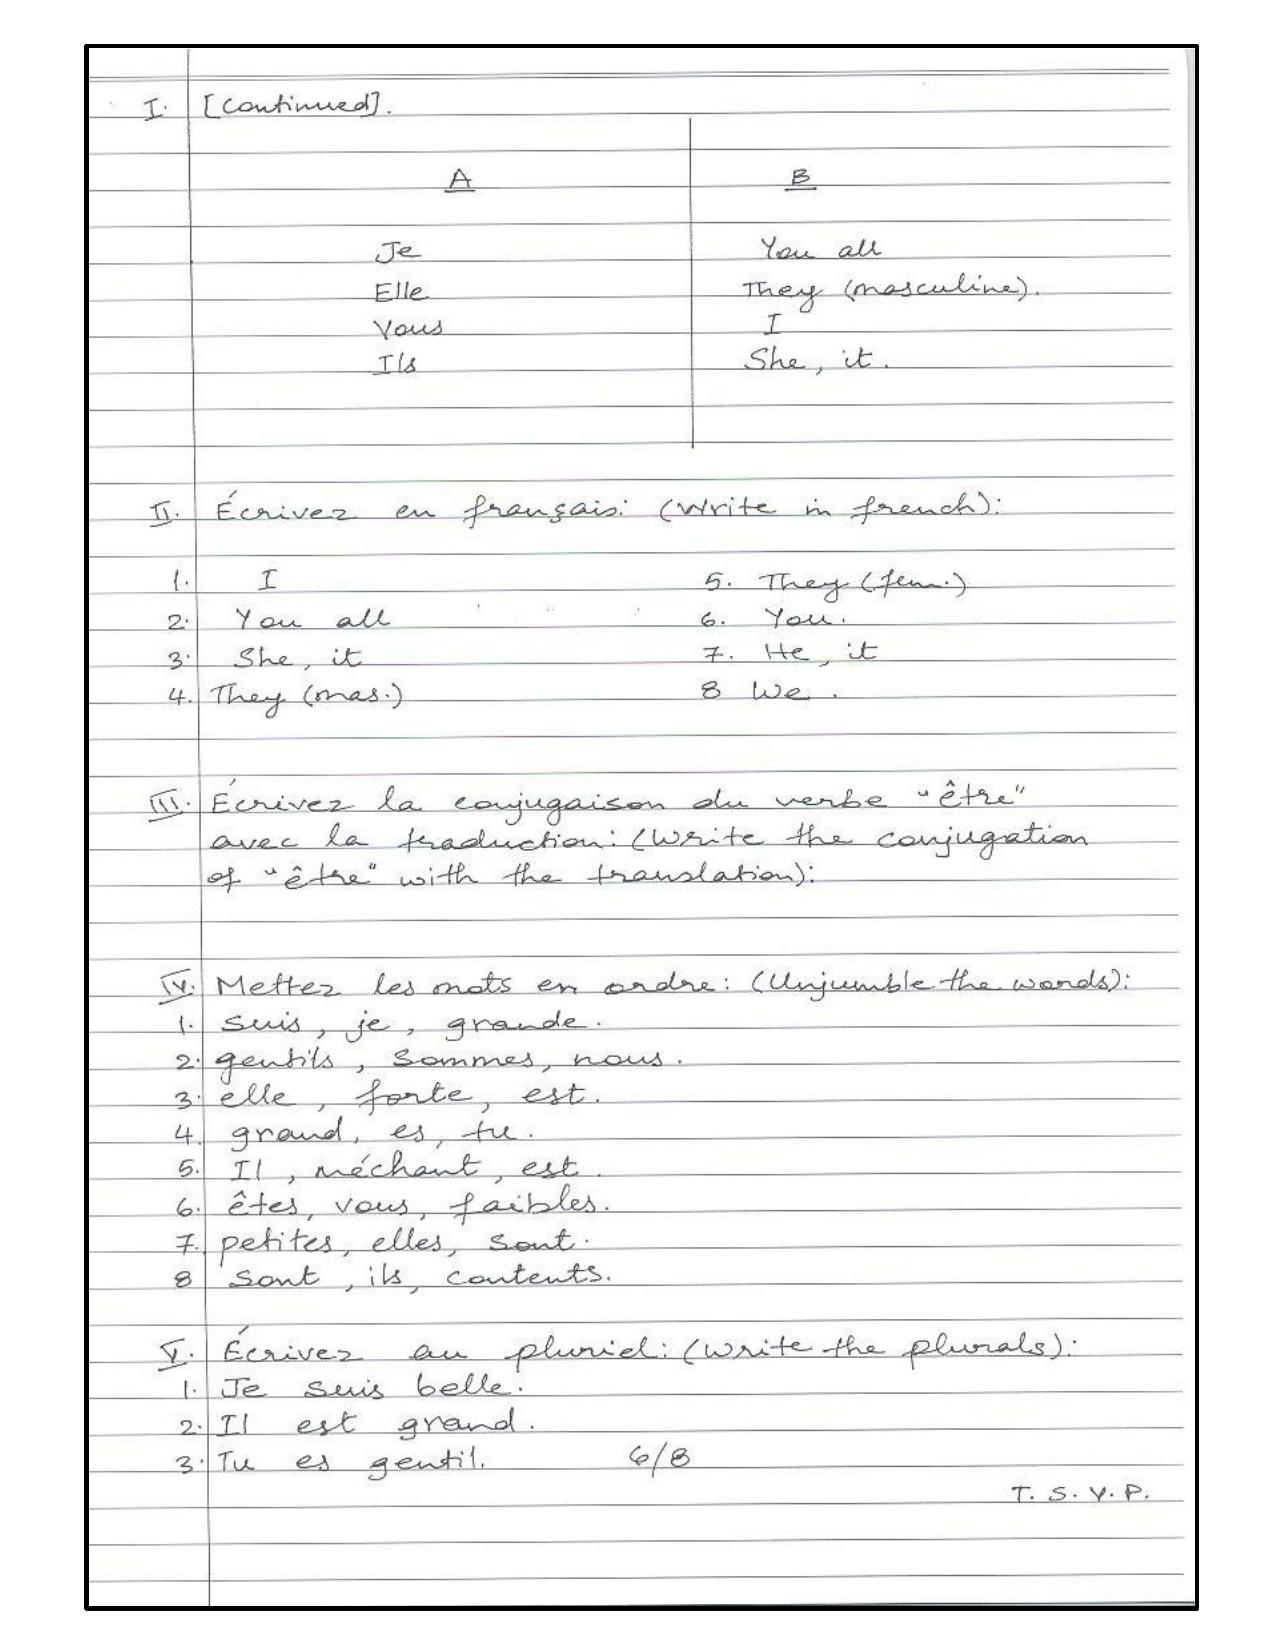 I. [Continued].
A B
Je You all
Elle They (masculine).
Vous I
Ils She, it.
II. Écrivez en français: (Write in french):
1. I 5. They (fem.)
2. You all 6. You.
3. She, it 7. He, it
4. They (mas.) 8 We.
III. Écrivez la conjugaison du verbe "être"
avec la traduction: (Write the conjugation
of "être" with the translation):
IV. Mettez les mots en ordre: (Unjumble the words):
1. suis, je, grande.
2. gentils, sommes, nous.
3. elle, forte, est.
4. grand, es, tu.
5. Il, méchant, est.
6. êtes, vous, faibles.
7. petites, elles, sont.
8 sont, ils, contents.
V. Écrivez au pluriel: (Write the plurals):
1. Je suis belle.
2. Il est grand.
3. Tu es gentil. 6/8
T. S. V. P.